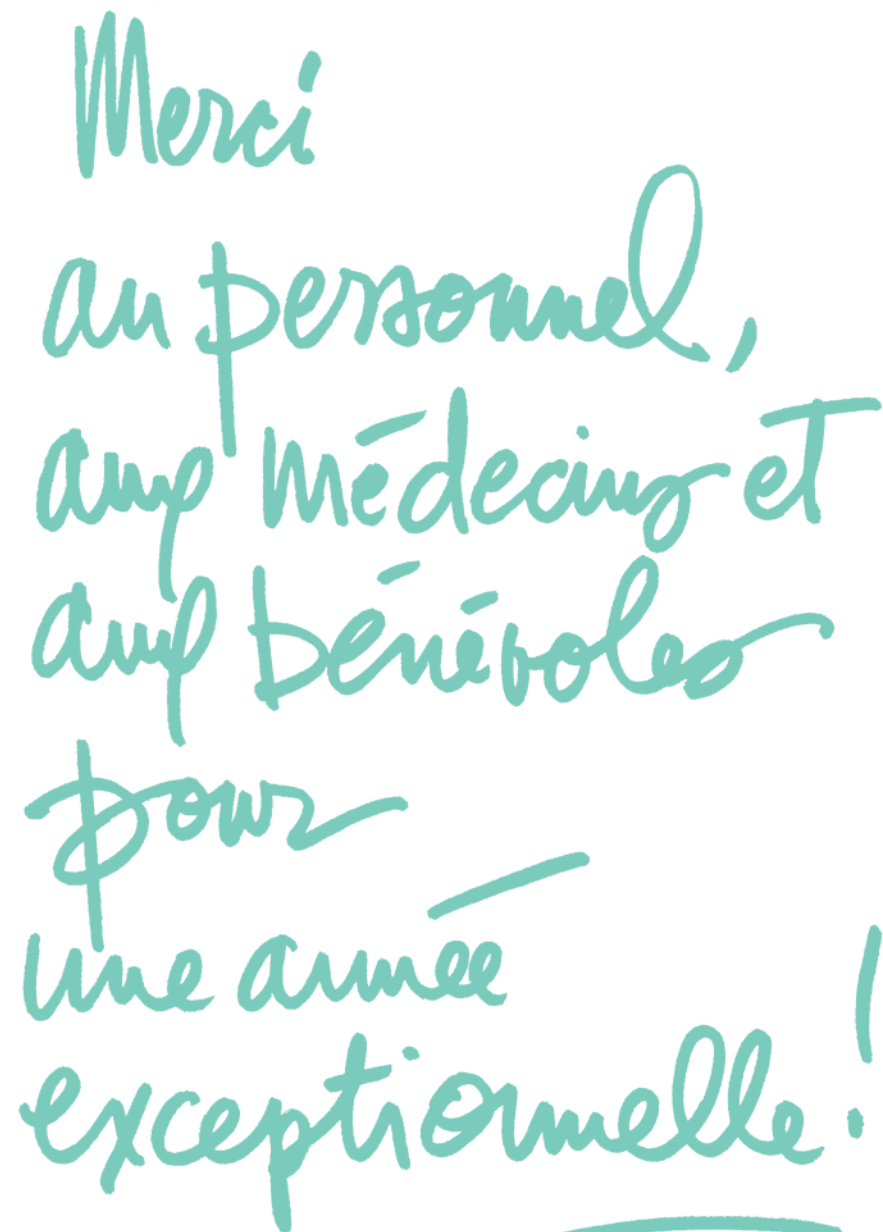 Merci
au personnel,
aux médecins et
aux bénévoles
pour
une année
exceptionnelle!